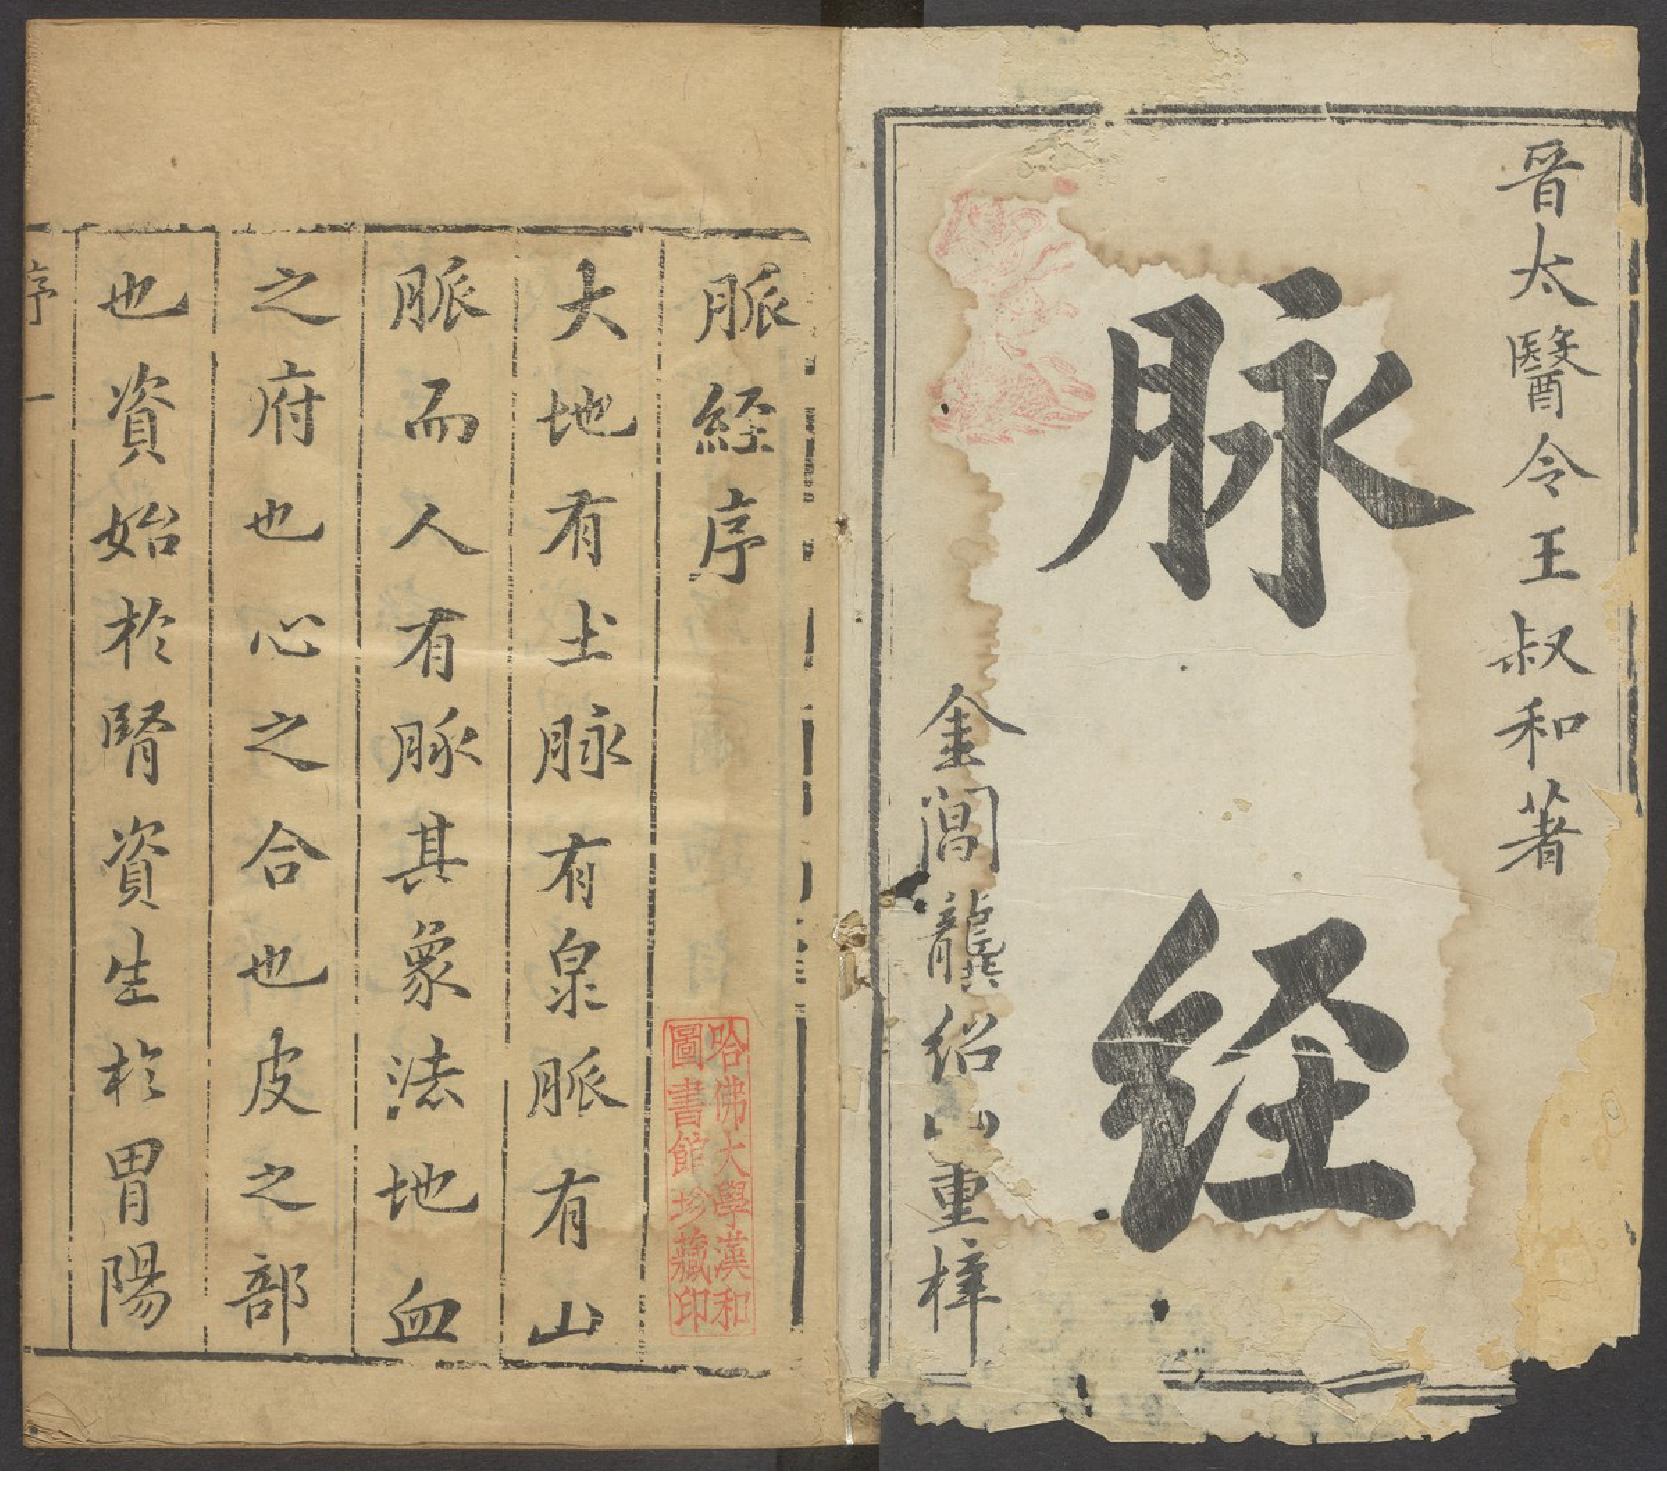 晋太醫令王叔和著
脉経
金閶龔紹山重梓
脈經序
大地有土脉有泉脈有山
脈而人有脉其象法地血
之府也心之合也皮之部
也資始於腎資生於胃陽
序 一
哈佛大學漢和
圖書館珍藏印